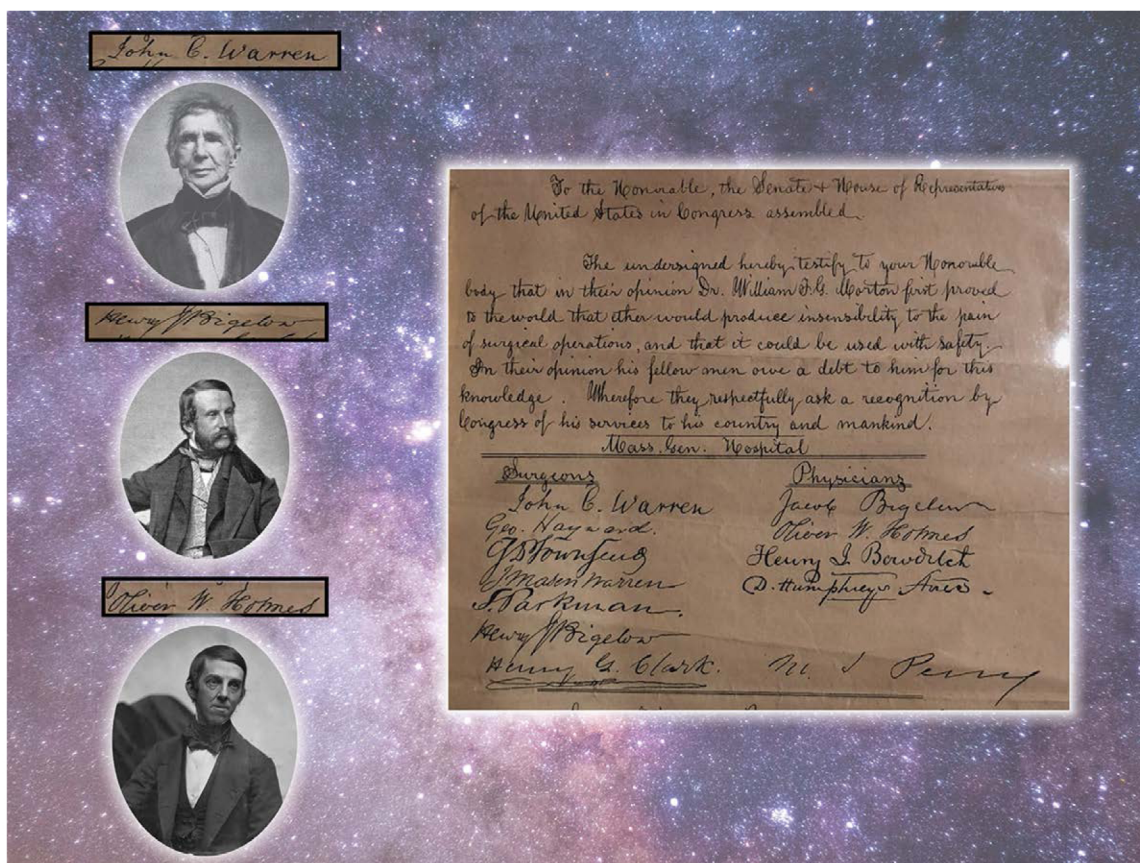 John C. Warren
Henry J Bigelow
Oliver W Holmes
To the Honorable, the Senate & House of Representatives
of the United States in Congress assembled.
The undersigned hereby testify to your Honorable
body that in their opinion Dr. William T. G. Morton first proved
to the world that ether would produce insensibility to the pain
of surgical operations, and that it could be used with safety.
In their opinion his fellow men owe a debt to him for this
knowledge. Wherefore they respectfully ask a recognition by
Congress of his services to his country and mankind.
Mass. Gen. Hospital
Surgeons
John C. Warren
Geo. Hayward.
Townsend
J Mason Warren
S. Parkman.
Henry J Bigelow
Henry G. Clark.
Physicians
Jacob Bigelow
Oliver W. Holmes
Henry I. Bowditch
D. Humphreys
M. S. Perry